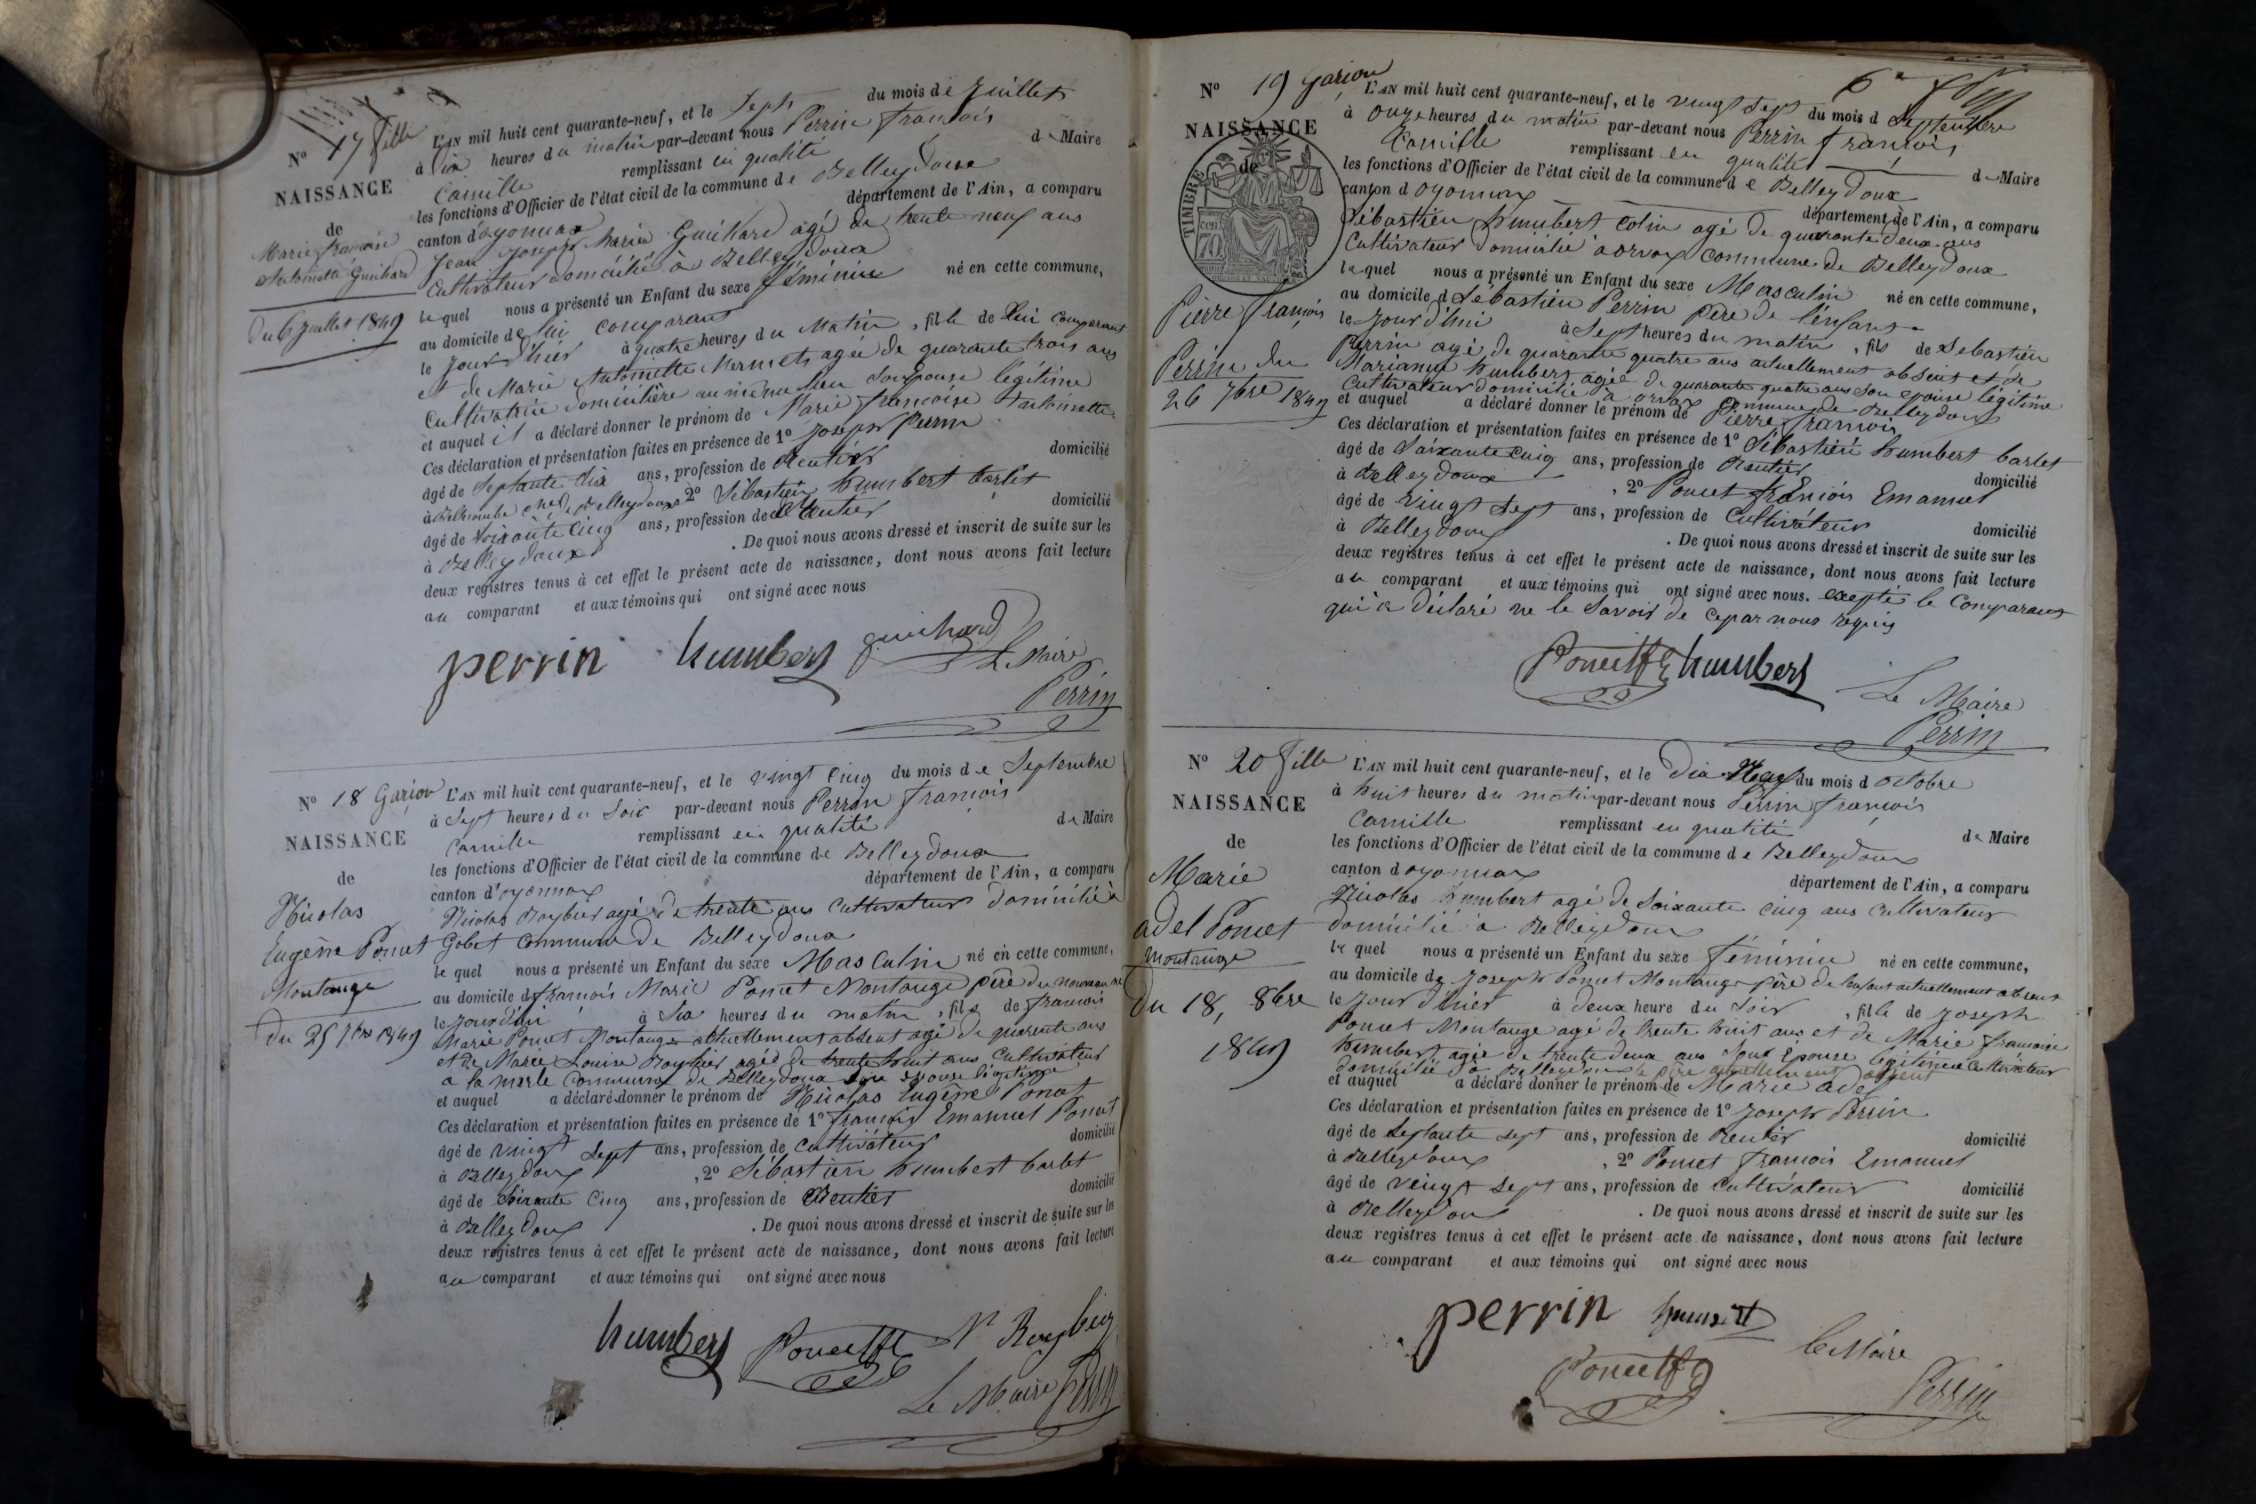 N° 17 fille
NAISSANCE
de
Marie françoise
Antoinette Guichard
Du 6 juillet 1849
L'AN mil huit cent quarante-neuf, et le Sept du mois de Juillet
à Six heures du matin par-devant nous Perrin françois
Camille remplissant en qualité de Maire
les fonctions d'Officier de l'état civil de la commune de Belleydoux
canton d'oyonnax département de l'Ain, a comparu
Jean Joseph Marie Guichard agé de trente neuf ans
Cultivateur domicilié à Belleydoux
lequel nous a présenté un Enfant du sexe féminin né en cette commune,
au domicile de lui comparant
le jour d'hier à quatre heures du Matin, fille de lui comparant
et de Marie Antoinette Mermet agée de quarante trois ans
Cultivatrice domicilière au même lieu Son épouse légitime
et auquel il a déclaré donner le prénom de Marie françoise Antoinette
Ces déclaration et présentation faites en présence de 1° Joseph Perrin
âgé de Septante dix ans, profession de Rentier domicilié
à Belleydoux 2° Sébastien humbert barlet
âgé de Soixante Cinq ans, profession de Rentier domicilié
à Belleydoux. De quoi nous avons dressé et inscrit de suite sur les
deux registres tenus à cet effet le présent acte de naissance, dont nous avons fait lecture
au comparant et aux témoins qui ont signé avec nous
perrin humbert guichard
Le Maire
Perrin
N° 18 Garçon
NAISSANCE
de
Nicolas
Eugène Poncet
Montange
du 25 7bre 1849
L'AN mil huit cent quarante-neuf, et le vingt cinq du mois de Septembre
à Sept heures du Soir par-devant nous Perrin françois
Camille remplissant en qualité de Maire
les fonctions d'Officier de l'état civil de la commune de Belleydoux
canton d'oyonnax département de l'Ain, a comparu
Nicolas Roybier agé de trente ans Cultivateur Domicilié à
Gobet Commune de Belleydoux
lequel nous a présenté un Enfant du sexe Masculin né en cette commune,
au domicile de françois Marie Poncet Montange père du nouveau né
le jourd'hui à Six heures du matin, fils de françois
Marie Poncet Montange actuellement absent agé de quarente ans
et de Marie Louise Roybier agée de trente huit ans Cultivateur
a la merle Commune de Belleydoux Son épouse légitime
et auquel a déclaré donner le prénom de Nicolas Eugène Poncet
Ces déclaration et présentation faites en présence de 1° françois Emanuel Poncet
âgé de vingt Sept ans, profession de Cultivateur domicilié
à Belleydoux, 2° Sébastien humbert barlet
âgé de Soixante Cinq ans, profession de Rentier domicilié
à Belleydoux. De quoi nous avons dressé et inscrit de suite sur les
deux registres tenus à cet effet le présent acte de naissance, dont nous avons fait lecture
au comparant et aux témoins qui ont signé avec nous
humbert Poncet fE N Roybier
Le Maire Perrin
N° 19 garçon
NAISSANCE
de
TIMBRE
70
Pierre françois
Perrin du
26 7bre 1849
L'AN mil huit cent quarante-neuf, et le vingt Sept du mois d Septembre
à onze heures du matin par-devant nous Perrin françois
Camille remplissant en qualité de Maire
les fonctions d'Officier de l'état civil de la commune de Belleydoux
canton d oyonnax département de l'Ain, a comparu
Sébastien humbert Colin agé de quarante deux ans
Cultivateur domicilié à orvaz Commune de Belleydoux
lequel nous a présenté un Enfant du sexe Masculin né en cette commune,
au domicile d Sébastien Perrin Père de l'enfant
le jour d'hui à Sept heures du matin, fils de Sébastien
Perrin agé de quarante quatre ans actuellement absent et de
Marianne humbert agée de quarante quatre ans Son épouse légitime
Cultivateur domicilié à orvaz Commune de Belleydoux
et auquel a déclaré donner le prénom de Pierre françois
Ces déclaration et présentation faites en présence de 1° Sébastien humbert barlet
âgé de Soixante cinq ans, profession de Rentier domicilié
à Belleydoux, 2° Poncet françois Emanuel
âgé de Vingt Sept ans, profession de Cultivateur domicilié
à Belleydoux. De quoi nous avons dressé et inscrit de suite sur les
deux registres tenus à cet effet le présent acte de naissance, dont nous avons fait lecture
au comparant et aux témoins qui ont signé avec nous. excepté le Comparant
qui a déclaré ne le Savoir de ce par nous requis
Poncet fE humbert
Le Maire
Perrin
N° 20 fille
NAISSANCE
de
Marie
adel Poncet
Montange
Du 18, 8bre
1849
L'AN mil huit cent quarante-neuf, et le Dix Neuf du mois d octobre
à huit heures du matin par-devant nous Perrin françois
Camille remplissant en qualité de Maire
les fonctions d'Officier de l'état civil de la commune de Belleydoux
canton d oyonnax département de l'Ain, a comparu
Nicolas humbert agé de Soixante cinq ans Cultivateur
domicilié à Belleydoux
lequel nous a présenté un Enfant du sexe féminin né en cette commune,
au domicile de Joseph Poncet Montange père de l'enfant actuellement absent
le jour d'hier à deux heure du Soir, fille de Joseph
Poncet Montange agé de trente huit ans et de Marie françoise
humbert agée de trente deux ans Son Épouse légitime Cultivateur
domicilié à Belleydoux le père actuellement absent
et auquel a déclaré donner le prénom de Marie adel
Ces déclaration et présentation faites en présence de 1° Joseph Perrin
âgé de Septante Sept ans, profession de Rentier domicilié
à Belleydoux, 2° Poncet françois Emanuel
âgé de vingt Sept ans, profession de Cultivateur domicilié
à Belleydoux. De quoi nous avons dressé et inscrit de suite sur les
deux registres tenus à cet effet le présent acte de naissance, dont nous avons fait lecture
au comparant et aux témoins qui ont signé avec nous
perrin humbert
Poncet fE
le Maire
Perrin